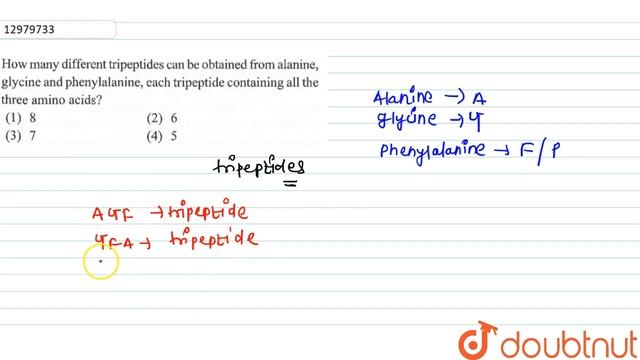 12979733
How many different tripeptides can be obtained from alanine,
glycine and phenylalanine, each tripeptide containing all the
three amino acids?
(1) 8 (2) 6
(3) 7 (4) 5
Alanine → A
glycine → G
Phenylalanine → F/P
tripeptides
AGF → tripeptide
GFA → tripeptide
doubtnut